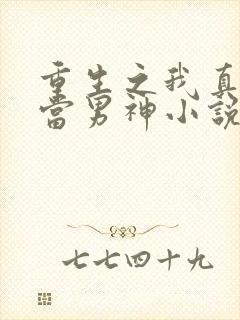 重生之我真
当男神小说
七七四十九